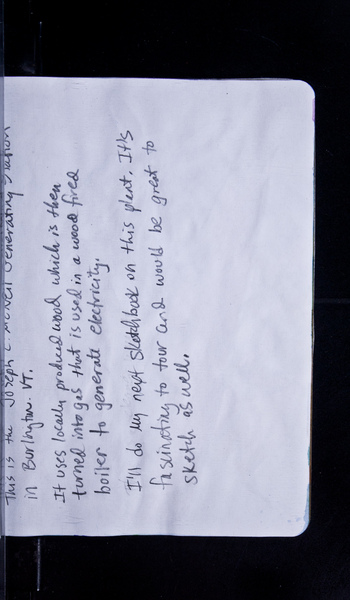 This is the Joseph C. McNeil Generating Station
in Burlington. VT.
It uses locally produced wood which is then
turned into gas that is used in a wood fired
boiler to generate electricity.
I'll do my next sketchbook on this plant. It's
fascinating to tour and would be great to
sketch as well.